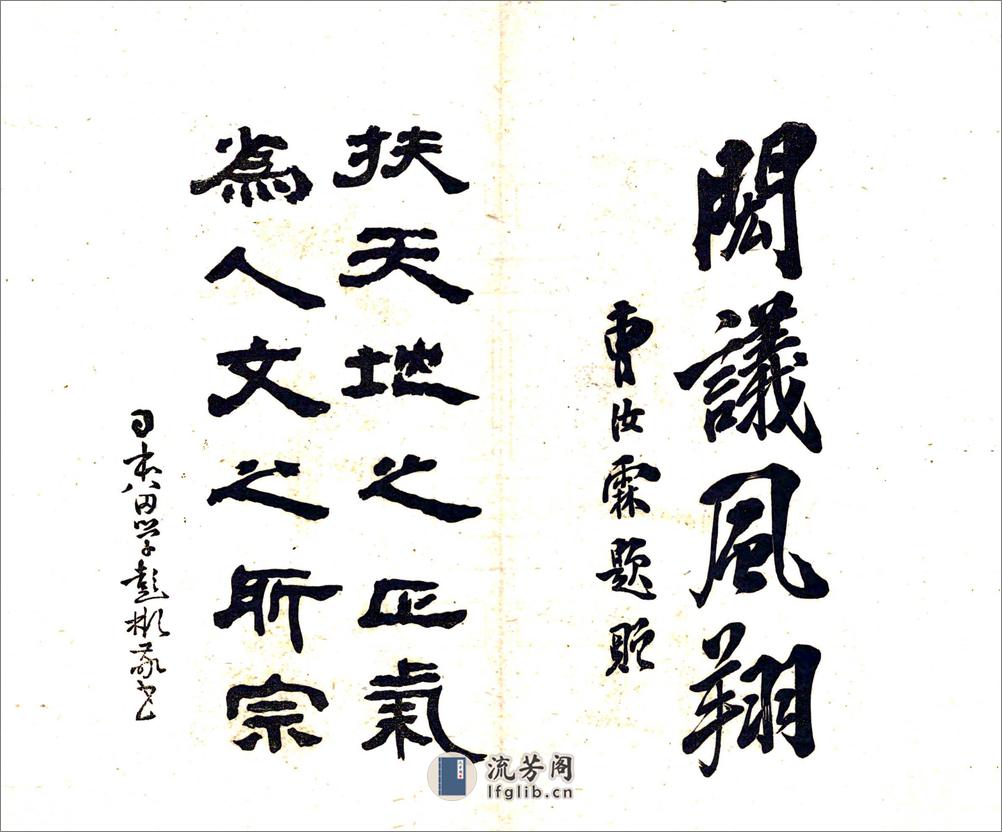 閎議風翔
曹汝霖題
扶天地之正氣
為人文之所宗
日本田学彭彬敬书
流芳阁
lfglib.cn